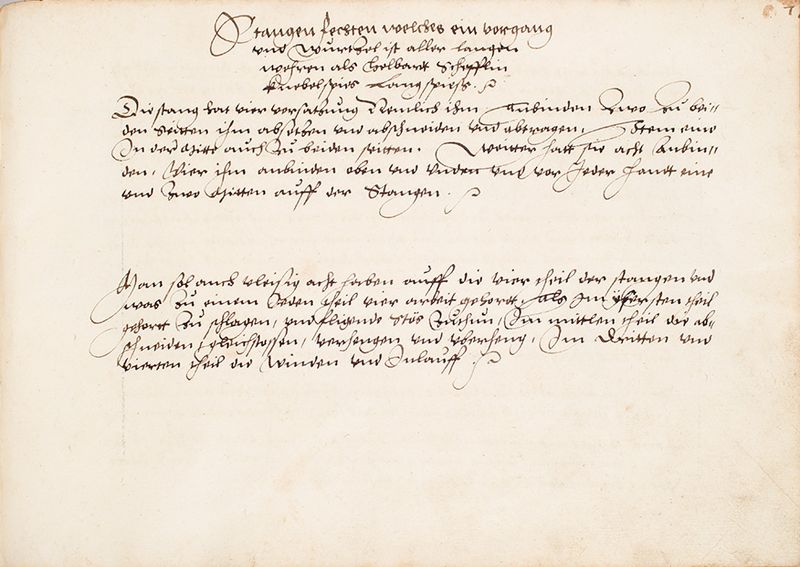 Stangen fechten welches ein vorgang
und wurtzel ist aller langen
wehren als Helbardt Schefflin
Knebelspies Langspiess.
Die stang hat vier versatzung Nemlich ihm anbinden Zwo Zu bei-
den seitten ihm absetzen und abschneiden und abtragen, Item eine
In der Mitte auch Zu beiden seitten. Weitter hatt sie acht Anbin-
den, Vier ihm anbinden oben und unden und vor Jeder Handt eine
und Zwo Mitten auff der Stangen.
Man sol auch vleisig acht haben auff die vier theil der stangen und
was Zu einem Jeden theil vier arbeit gehordt, als Im öbersten theil
gehordt Zu schlagen, und fligende Stös Zuthun, Im mittlen theil die ab-
schneiden, gleichstossen, verhengen und uberheng, Im Dritten und
vierten theil die winden und Inlauff.
7